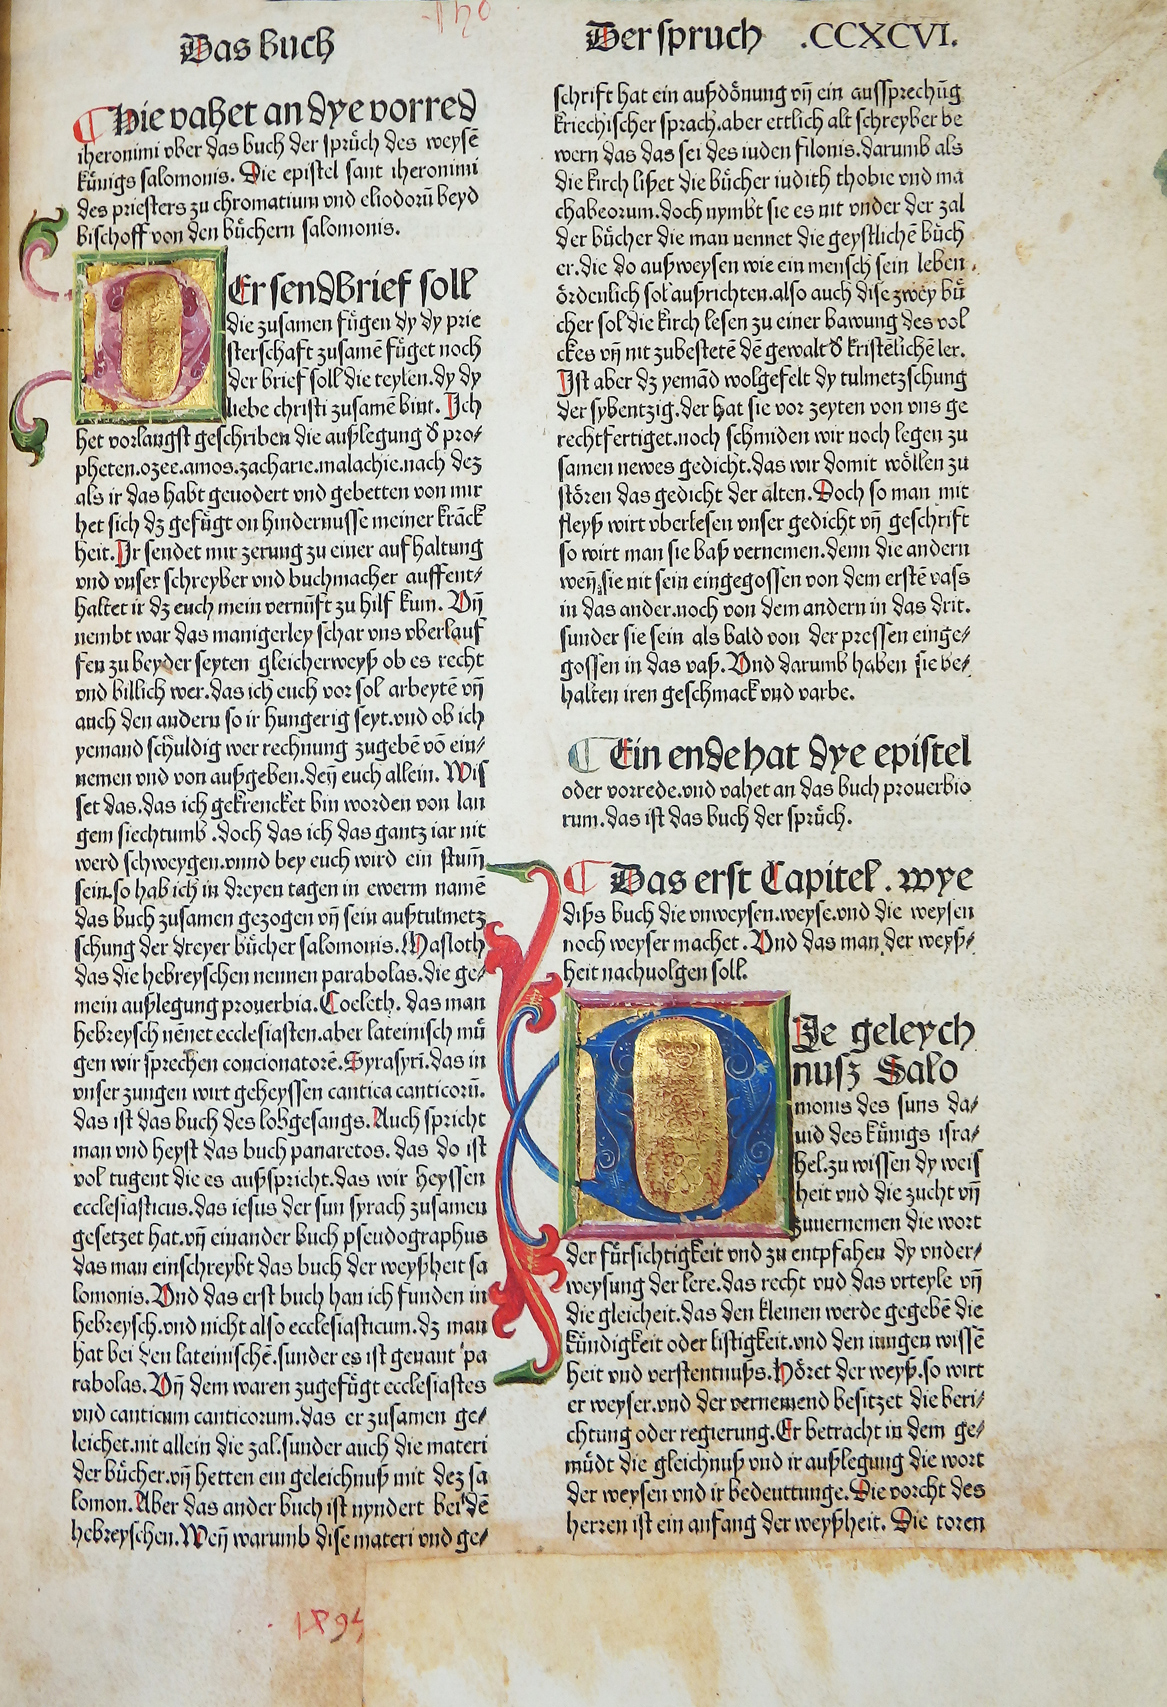 Das buch
Der spruch .CCXCVI.
Hie vahet an dye vorred
iheronimi vber das buch der sprüch des weysē
künigs salomonis. Die epistel sant iheronimi
des priesters zu chromatium vnd eliodorū beyd
bischoff von den büchern salomonis.
DEr sendbrief soll
die zusamen fügen dy dy prie
sterschaft zusamē füget noch
der brief soll die teylen.dy dy
liebe christi zusamē bint. Ich
het vorlangst geschriben die außlegung d̄ pro-
pheten.ozee.amos.zacharie.malachie.nach dez
als ir das habt geuodert vnd gebetten von mir
het sich dz gefügt on hindernusse meiner krāck
heit.Ir sendet mir zerung zu einer aufhaltung
vnd vnser schreyber vnd buchmacher auffent-
haltet ir dz euch mein vernūft zu hilf kum. Vn̄
nembt war das manigerley schar vns vberlauf
fen zu beyder seyten gleicherweyß ob es recht
vnd billich wer.das ich euch vor sol arbeytē vn̄
auch den andern so ir hungerig seyt.vnd ob ich
yemand schuldig wer rechnung zugebē vō ein-
nemen vnd von außgeben.den̄ euch allein. Wis
set das.das ich gekrencket bin worden von lan
gem siechtumb .doch das ich das gantz iar nit
werd schweygen.vnnd bey euch wird ein stum̄
sein.so hab ich in dreyen tagen in ewerm namē
das buch zusamen gezogen vn̄ sein außtulmetz
schung der dreyer bücher salomonis.Masloth
das die hebreyschen nennen parabolas.die ge-
mein außlegung prouerbia.Coeleth. das man
hebreysch nēnet ecclesiasten.aber lateinisch mü
gen wir sprechen concionatorē.Syrasyrī.das in
vnser zungen wirt geheyssen cantica canticorū.
das ist das buch des lobgesangs.Auch spricht
man vnd heyst das buch panaretos. das do ist
vol tugent die es außspricht.das wir heyssen
ecclesiasticus.das iesus der sun syrach zusamen
gesetzet hat.vn̄ einander buch pseudographus
das man einschreybt das buch der weyßheit sa
lomonis.Vnd das erst buch han ich funden in
hebreysch.vnd nicht also ecclesiasticum.dz man
hat bei den lateinischē.sunder es ist genant pa
rabolas.Vn̄ dem waren zugefügt ecclesiastes
vnd canticum canticorum.das er zusamen ge-
leichet.nit allein die zal.sunder auch die materi
der bücher.vn̄ hetten ein geleichnuß mit dez sa
lomon.Aber das ander buch ist nyndert bei dē
hebreyschen.Wen̄ warumb dise materi vnd ge-
schrift hat ein außdönung vn̄ ein aussprechūg
kriechischer sprach.aber ettlich alt schreyber be
wern das das sei des iuden filonis.darumb als
die kirch lißet die bücher iudith thobie vnd ma
chabeorum.doch nymbt sie es nit vnder der zal
der bücher die man nennet die geystlichē büch
er.die do außweysen wie ein mensch sein leben.
ördenlich sol außrichten.also auch dise zwey bü
cher sol die kirch lesen zu einer bawung des vol
ckes vn̄ nit zubestetē dē gewalt d̄ kristēlichē ler.
Ist aber dz yemād wolgefelt dy tulmetzschung
der sybentzig.der hat sie vor zeyten von vns ge
rechtfertiget.noch schmiden wir noch legen zu
samen newes gedicht.das wir domit wöllen zu
stören das gedicht der alten.Doch so man mit
fleyß wirt vberlesen vnser gedicht vn̄ geschrift
so wirt man sie baß vernemen.denn die andern
wen̄ sie nit sein eingegossen von dem erstē vass
in das ander.noch von dem andern in das drit.
sunder sie sein als bald von der pressen einge-
gossen in das vaß.Vnd darumb haben sie be-
halten iren geschmack vnd varbe.
Ein ende hat dye epistel
oder vorrede.vnd vahet an das buch prouerbio
rum.das ist das buch der sprüch.
Das erst Capitel . wye
dißs buch die vnweysen.weyse.vnd die weysen
noch weyser machet . Vnd das man der weyß-
heit nachuolgen soll.
DIe geleych
nusz Salo
monis des suns da-
uid des künigs isra-
hel.zu wissen dy weis
heit vnd die zucht vn̄
zuuernemen die wort
der fürsichtigkeit vnd zu entpfahen dy vnder-
weysung der lere.das recht vnd das vrteyle vn̄
die gleicheit.das den kleinen werde gegebē die
kündigkeit oder listigkeit.vnd den iungen wissē
heit vnd verstentnußs.Höret der weyß.so wirt
er weyser.vnd der vernemend besitzet die beri-
chtung oder regierung.Er betracht in dem ge-
müdt die gleichnuß vnd ir außlegung die wort
der weysen vnd ir bedeuttunge.Die vorcht des
herren ist ein anfang der weyßheit. Die toren